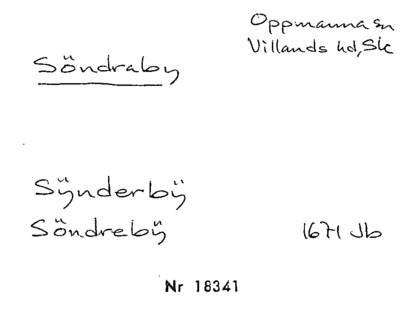 Oppmanna sn
Villands hd, Sk
Söndraby
Sÿnderbÿ
Söndrebÿ 1671 Jb
Nr 18341